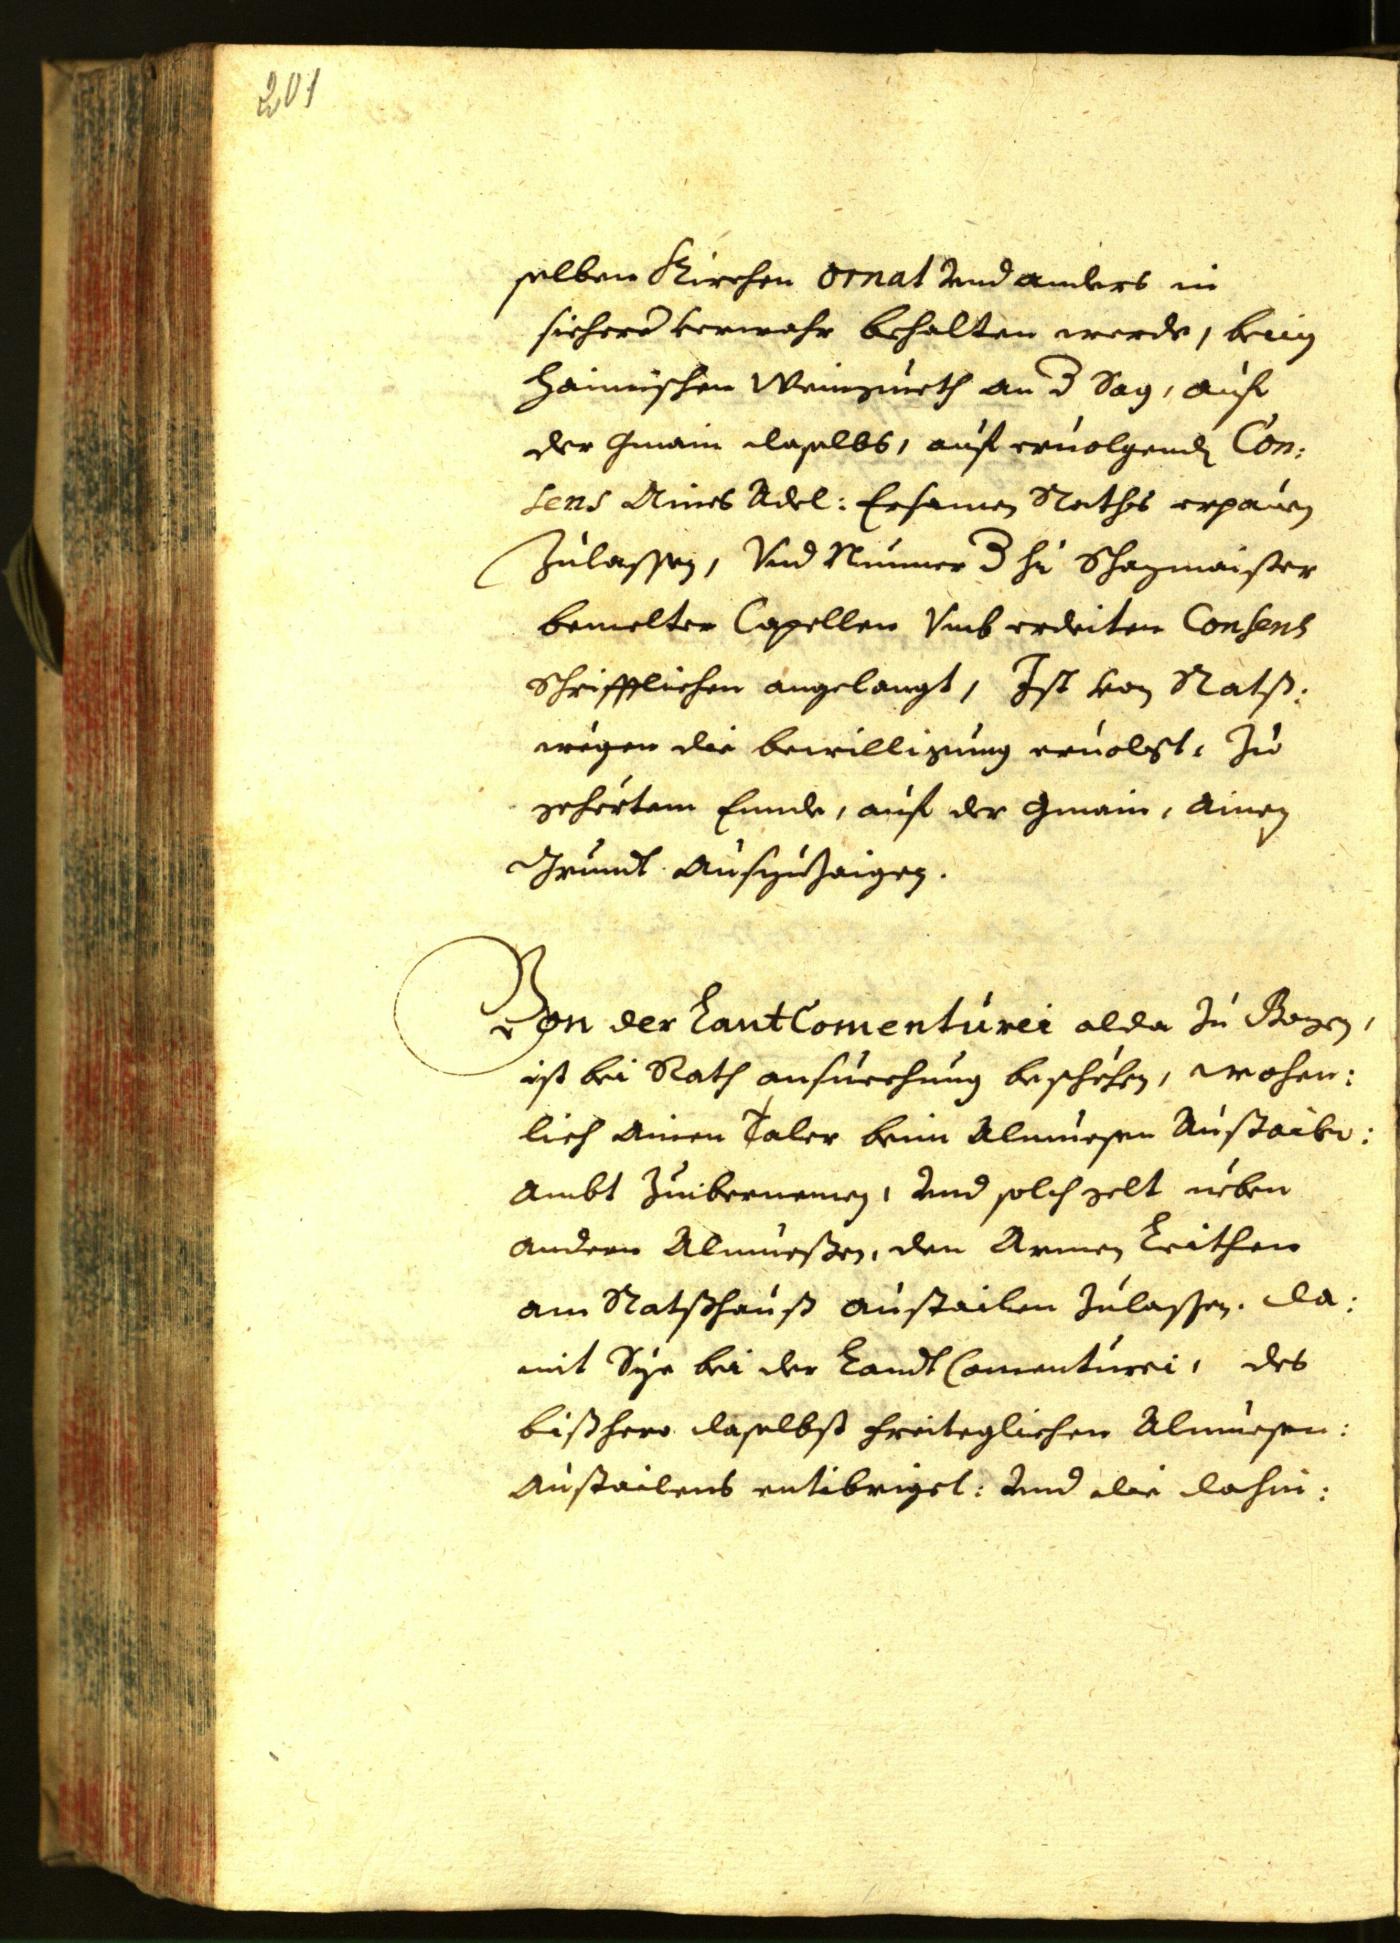 201
selben Kirchen ornat vnd anders in
sicherer verwahr behalten werde, beim
Hainrischen Weingueth an der Sag, auf
der Gmain daselbs, auf eruolgende Con:
sens Aines Adel: Ersamen Raths erpauen
Zulassen, Vnd Nunmer der hr Schazmaister
bemelter Capellen Vmb erdeiten Consens
Schrifftlichen angelangt, Ist von Ratß:
wegen die bewilligung eruolgt, Zu
gehörtem Ennde, auf der Gmain, ainen
Grundt Auszuzaigen.
Von der LantComenturei alda zu Bozen,
ist bei Rath ansuechung beschehen, wochen:
lich Ainen Taler beim Almuesen Austaile:
Ambt Zuibernemen, vnd solch gelt neben
andern Almueßen, den Armen Leithen
am Ratßhauß austailen Zulassen. da:
mit Sye bei der LandtComenturei, des
bißhero daselbst freiteglichen Almuesen:
Austailens entibriget: vnd die dahin: